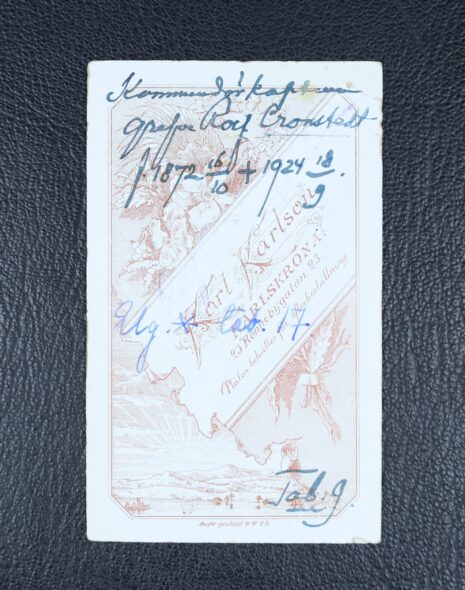 Kommendörkaptenen
greve Rolf Cronstedt
f. 1872 16/10 + 1924 18/9.
Karl Karlson
KARLSKRONA.
23 Ronnebygatan 23.
Platen behålles för Efterbeställning
Elg. * 17.
Tab. 9.
Muster geschützt W.W. 63